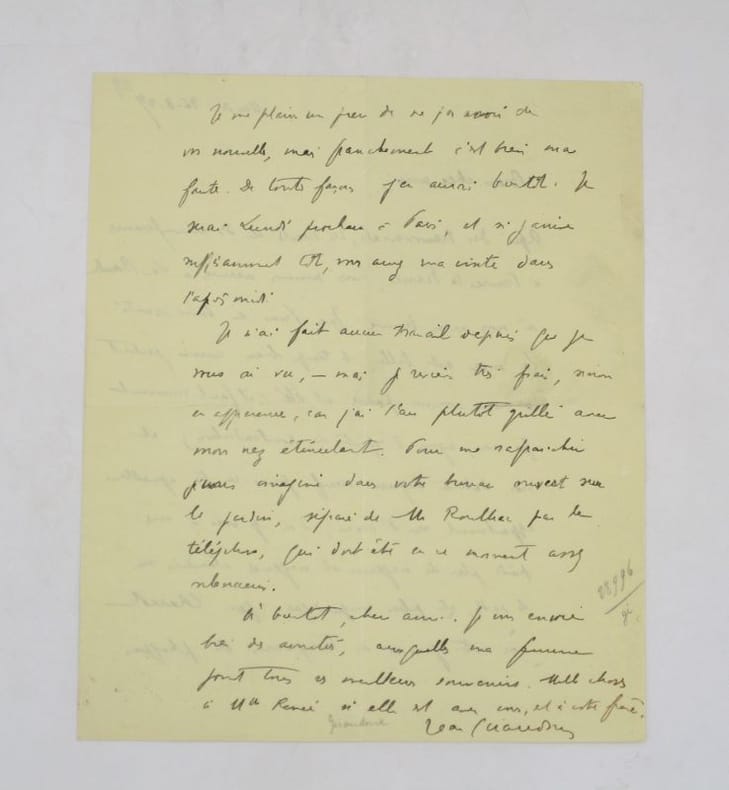 Je me plains un peu de ne pas avoir de
vos nouvelles, mais franchement c'est bien ma
faute. De toute façon j'en aurai bientôt. Je
serai Lundi prochain à Paris, et si j'arrive
suffisamment tôt, vous aurez ma visite dans
l'après midi.
Je n'ai fait aucun travail depuis que je
vous ai vu, — mais je reviens très frais, sinon
en apparence, car j'ai l'air plutôt grillé avec
mon nez étincelant. Pour me rafraichir
je vous imagine dans votre bureau ouvert sur
le jardin, séparé de Mr par le
téléphone, qui doit être en ce moment assez
silencieux.
A bientôt, cher ami. Je vous envoie
bien des amitiés, auxquelles ma femme
joint tous ses meilleurs souvenirs. Mille choses
à Mlle Renée si elle est avec vous, et à votre frère.
Jean Giraudoux
Giraudoux
28996